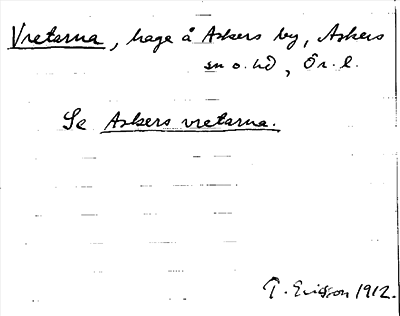 Vretarna, hage å Askers by, Askers
sn o. hd, Ör. l.
Se Askers vretarna.
T. Ericsson 1912.